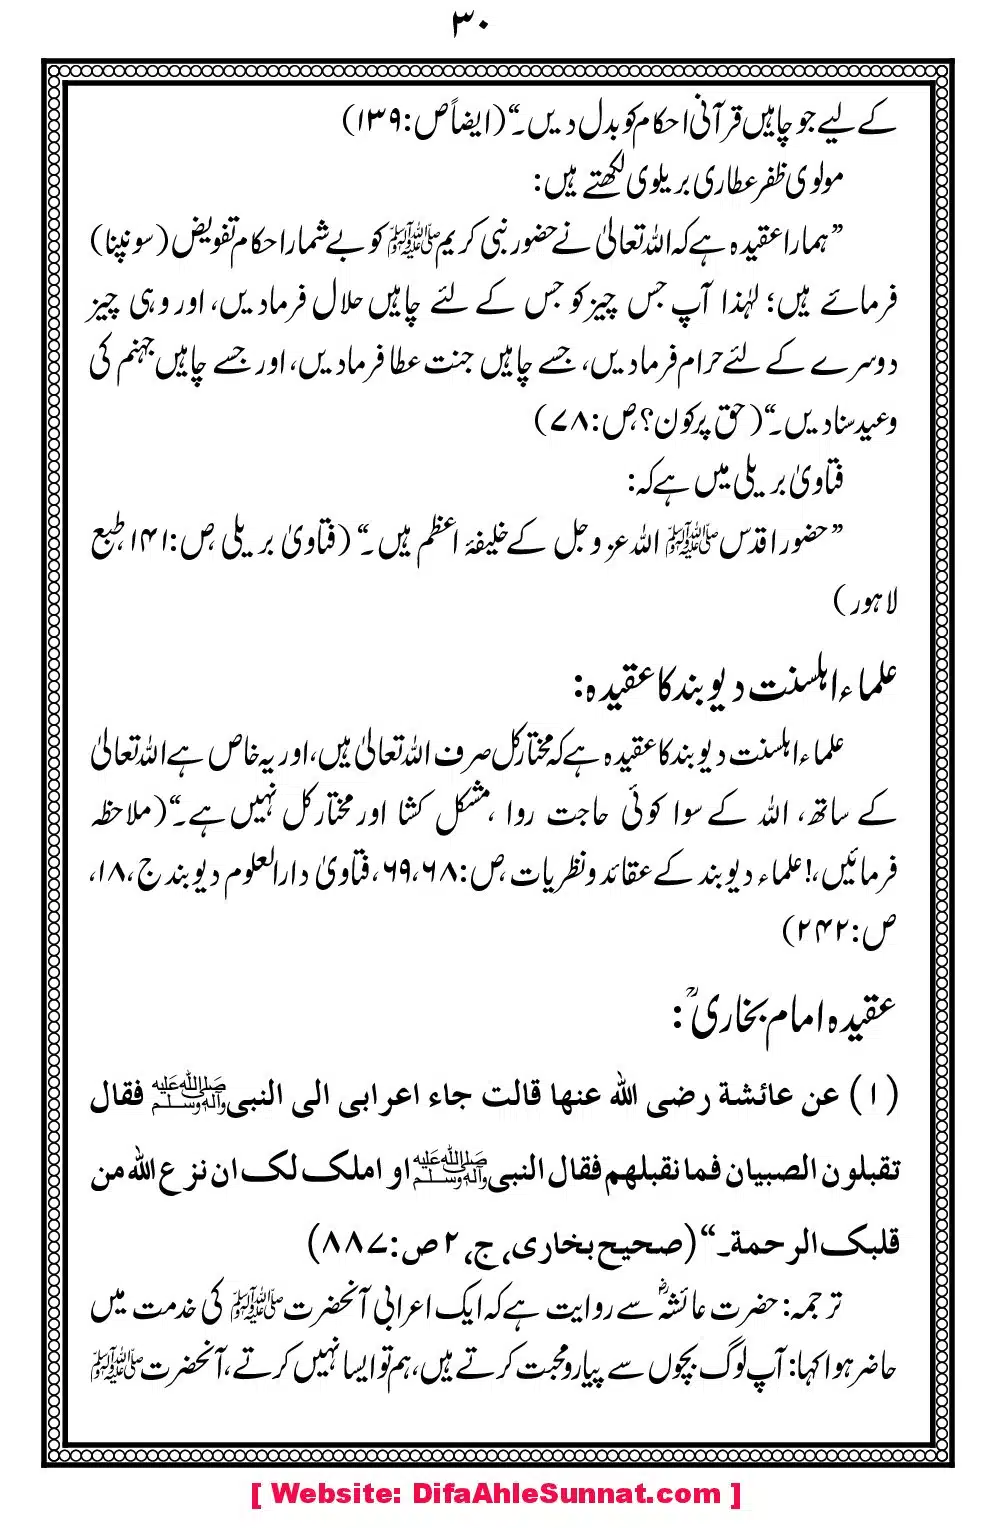 ۳۰
کے لیے جو چاہیں قرآنی احکام کو بدل دیں۔“ (ایضاً ص:۱۳۹)
مولوی ظفر عطاری بریلوی لکھتے ہیں:
”ہمارا عقیدہ ہے کہ اللہ تعالیٰ نے حضور نبی کریم ﷺ کو بے شمار احکام تفویض (سونپنا)
فرمائے ہیں؛ لہٰذا آپ جس چیز کو جس کے لئے چاہیں حلال فرمادیں، اور وہی چیز
دوسرے کے لئے حرام فرمادیں، جسے چاہیں جنت عطا فرمادیں، اور جسے چاہیں جہنم کی
وعید سنادیں۔“ (حق پر کون؟ ص:۷۸)
فتاویٰ بریلی میں ہے کہ:
”حضور اقدس ﷺ اللہ عز وجل کے خلیفۂ اعظم ہیں۔“ (فتاویٰ بریلی، ص:۱۴۱، طبع
لاہور)
علماء اہلسنت دیوبند کا عقیدہ:
علماء اہلسنت دیوبند کا عقیدہ ہے کہ مختار کل صرف اللہ تعالیٰ ہیں، اور یہ خاص ہے اللہ تعالیٰ
کے ساتھ، اللہ کے سوا کوئی حاجت روا، مشکل کشا اور مختار کل نہیں ہے۔“ (ملاحظہ
فرمائیں،! علماء دیوبند کے عقائد ونظریات، ص:۶۸، ۶۹، فتاویٰ دارالعلوم دیوبند ج، ۱۸،
ص:۲۴۲)
عقیدہ امام بخاریؒ:
(۱) عن عائشة رضی الله عنها قالت جاء اعرابی الی النبی ﷺ فقال
تقبلون الصبیان فما نقبلهم فقال النبی ﷺ او املک لک ان نزع الله من
قلبک الرحمة۔“ (صحیح بخاری، ج، ۲ ص:۸۸۷)
ترجمہ: حضرت عائشہؓ سے روایت ہے کہ ایک اعرابی آنحضرت ﷺ کی خدمت میں
حاضر ہوا کہا: آپ لوگ بچوں سے پیار ومحبت کرتے ہیں، ہم تو ایسا نہیں کرتے، آنحضرت ﷺ
[ Website: DifaAhleSunnat.com ]